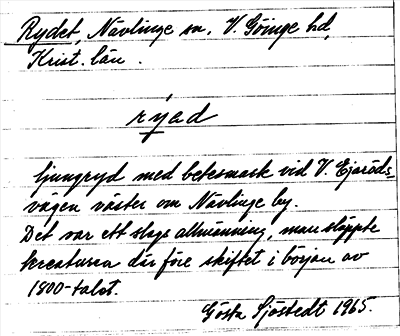 Rydet, Nävlinge sn, V. Göinge hd,
Krist. län.
rýed
ljungryd med betesmark vid V. Ejaröds-
vägen väster om Nävlinge by.
Det var ett slags allmänning, man släppte
kreaturen där före skiftet i början av
1800-talet.
Gösta Sjöstedt 1965.